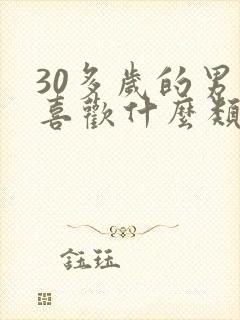 30多歲的男
喜歡什麼類
鈺珏